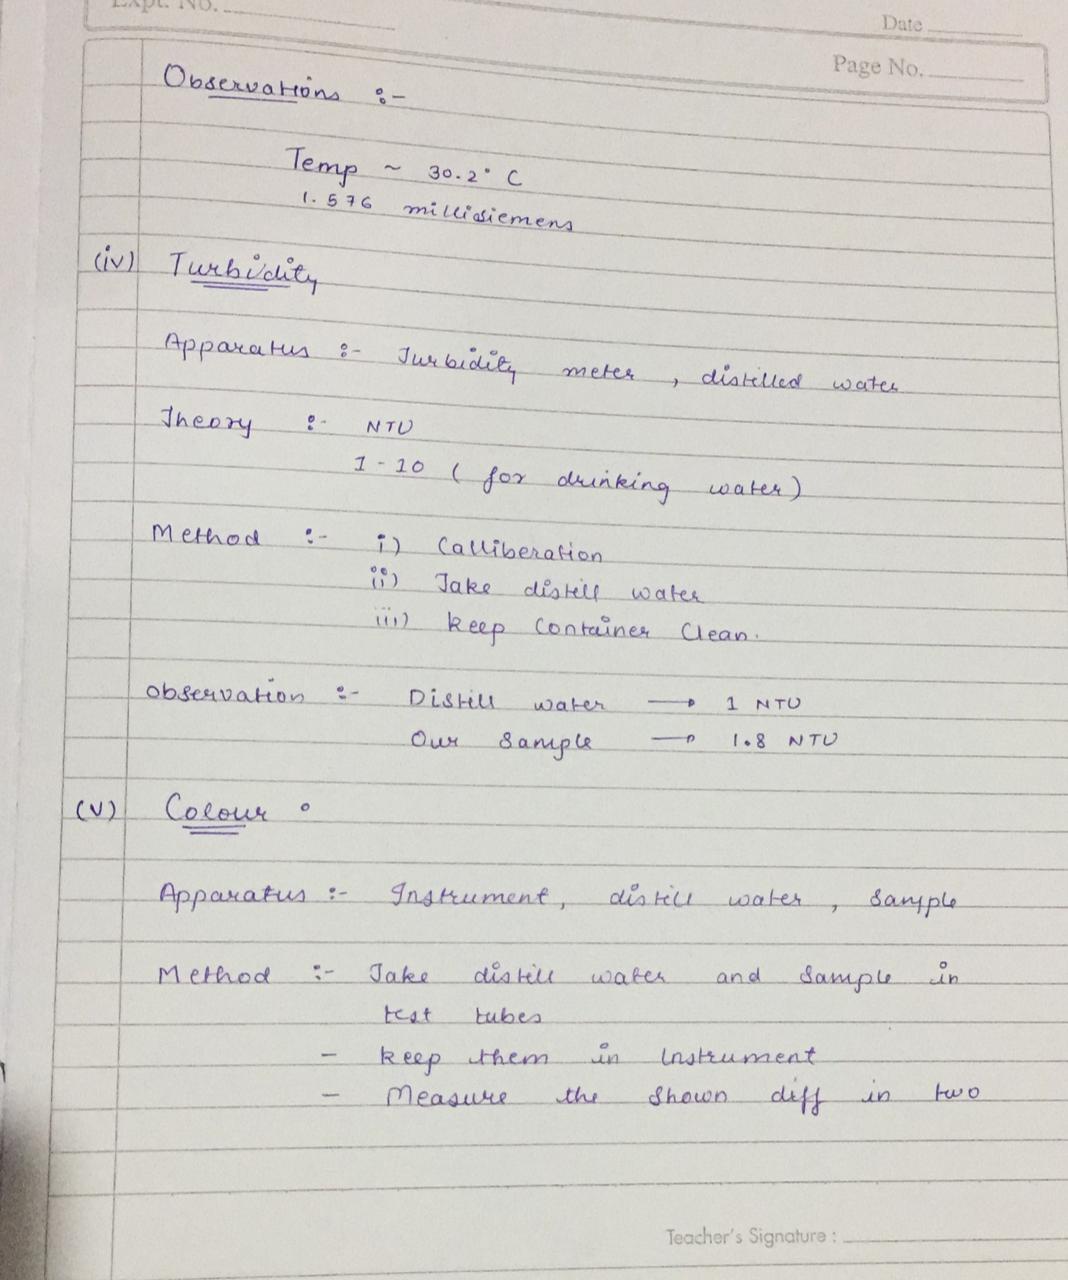 Expt. No.
Date
Page No.
Observations :-
Temp ~ 30.2° C
1.576 millisiemens
(iv) Turbidity
Apparatus :- Turbidity meter , distilled water
Theory :- NTU
1 - 10 ( for drinking water)
Method :- i) Calliberation
ii) Take distill water
iii) keep Container Clean.
observation :- Distill water → 1 NTU
Our Sample → 1.8 NTU
(v) Colour :
Apparatus :- Instrument, distill water , Sample
Method :- Take distill water and Sample in
test tubes
- keep them in Instrument
- Measure the Shown diff in two
Teacher's Signature :